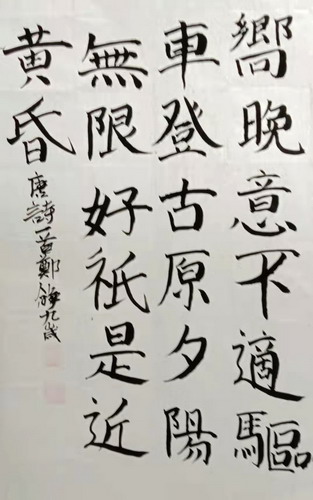 嚮晚意不適驅
車登古原夕陽
無限好祇是近
黃昏
唐詩一首鄭九歲